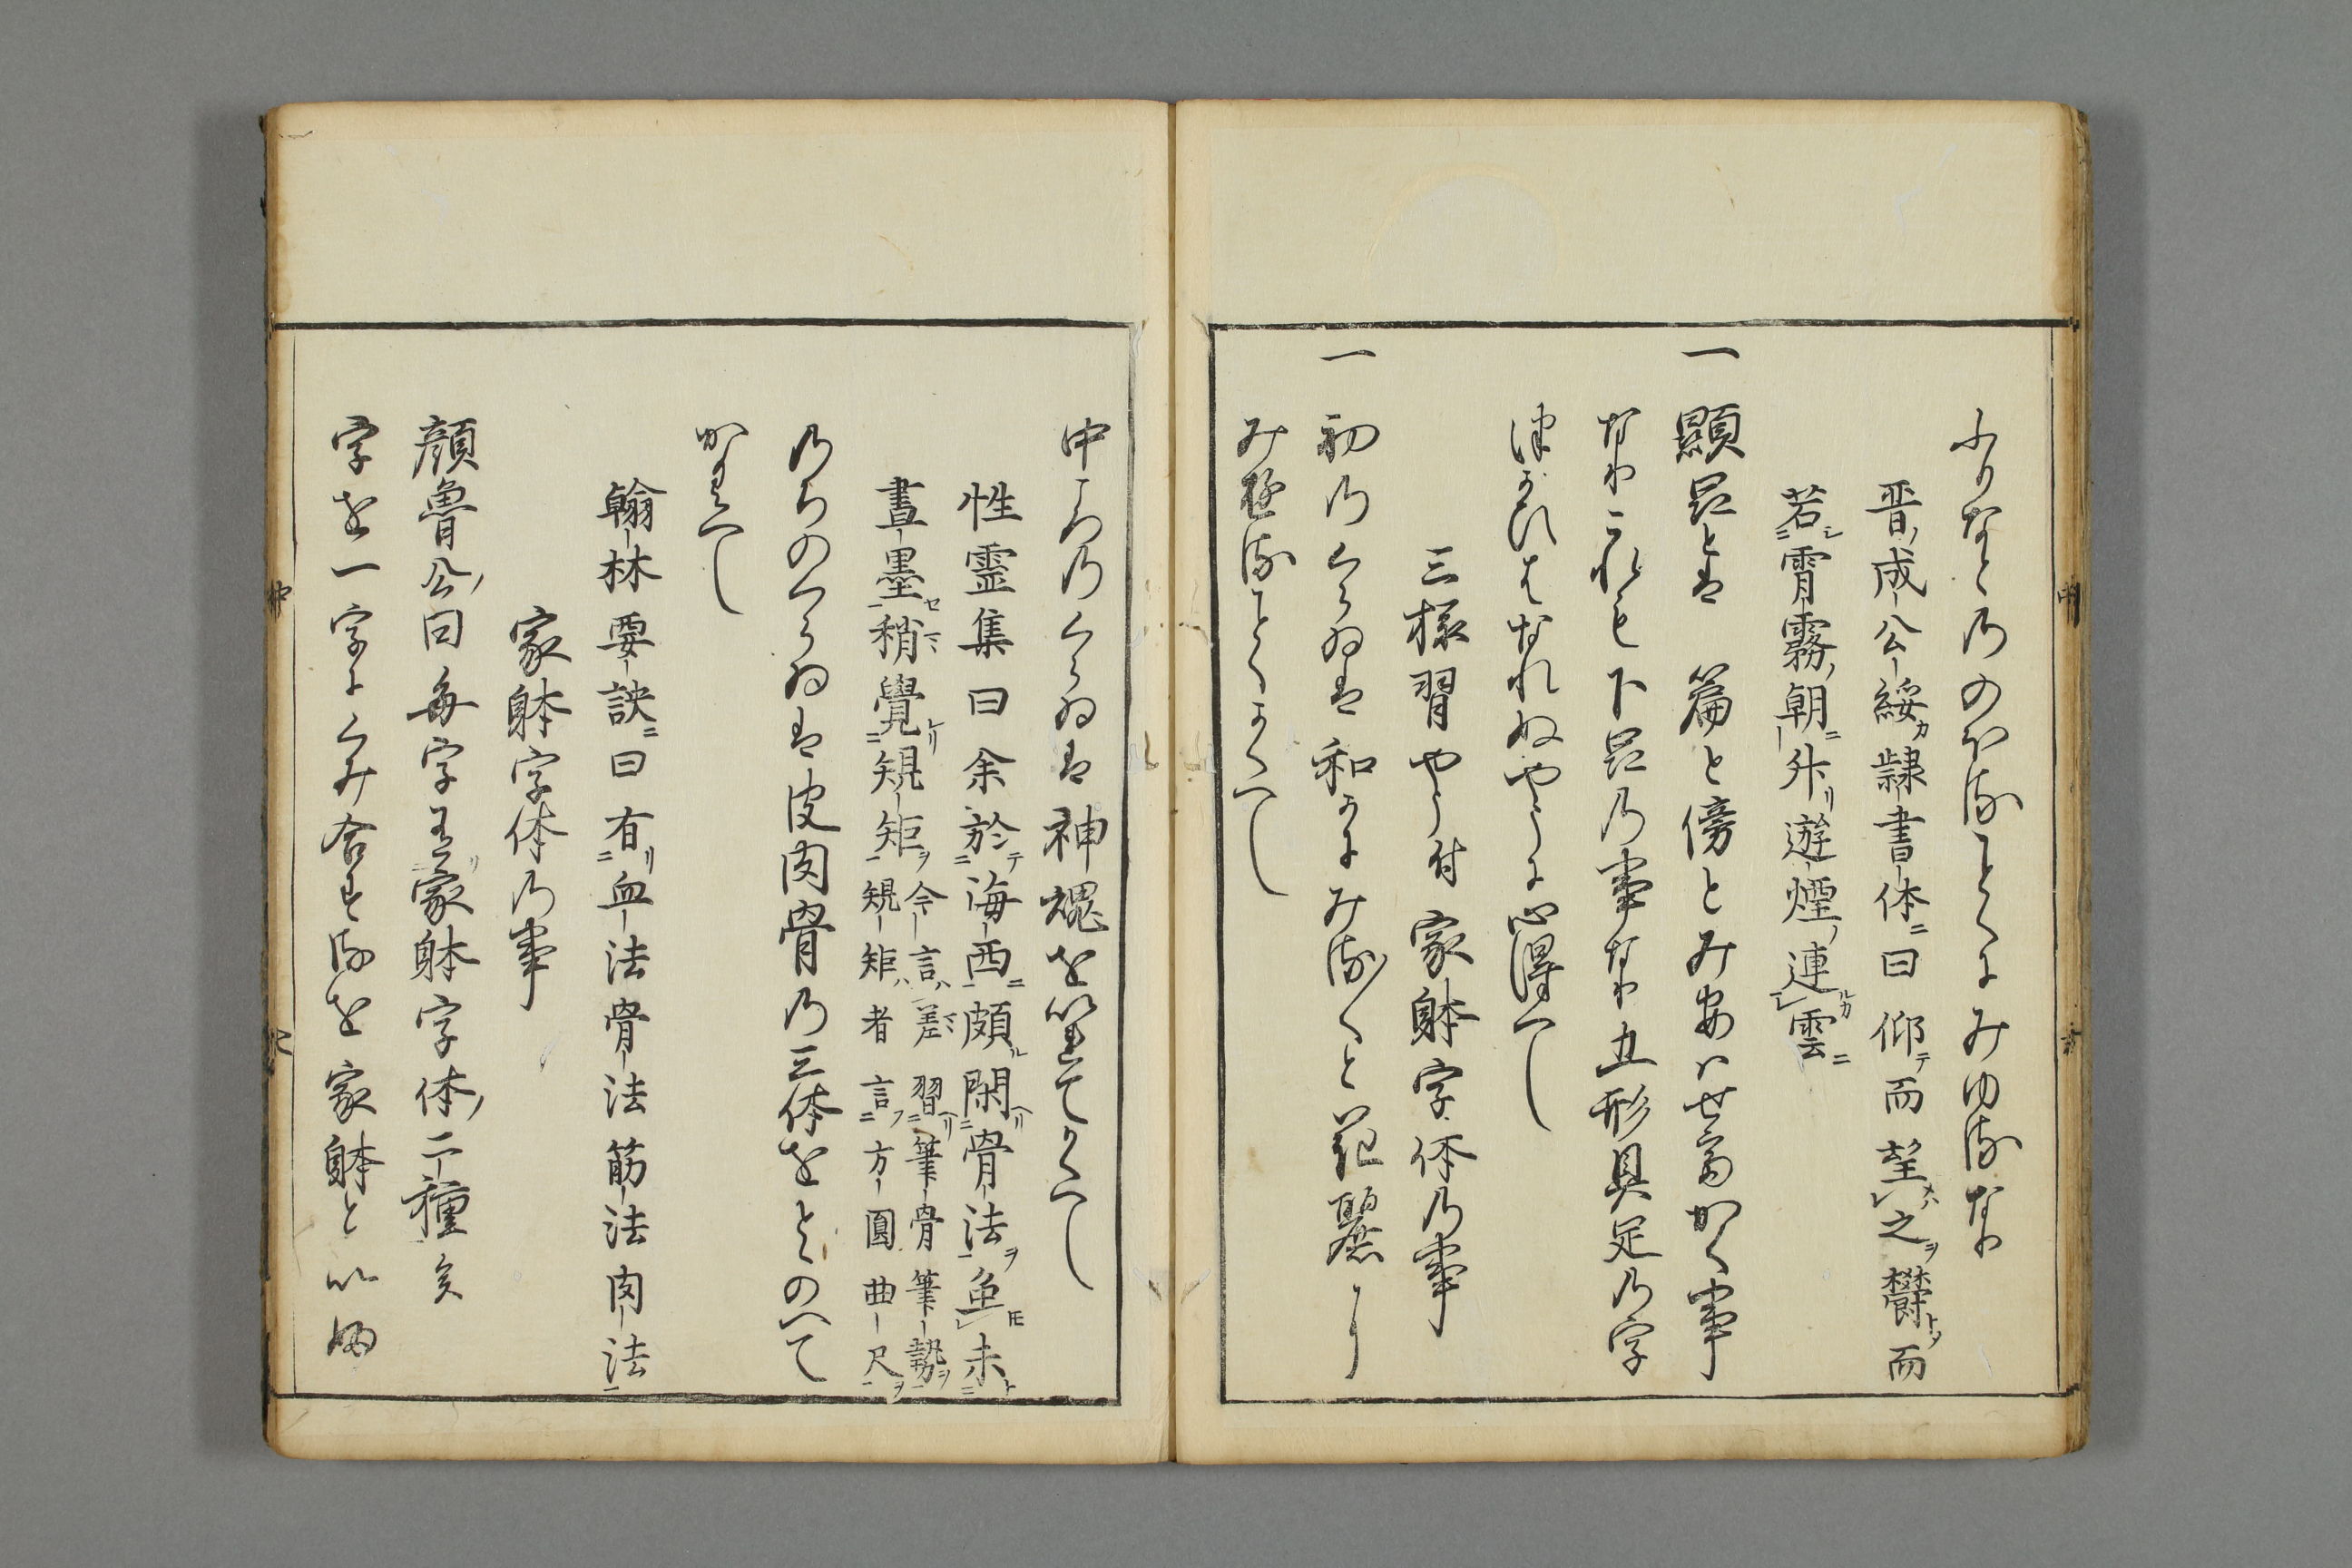 ふりなとのの本る事くにみゆるなり
晋成公綏隷書体曰仰而望之欝而
若霄霧朝升遊煙連雲
一顕品とは 篇と傍とみ安ハせ高かく事
なりこれも下品の事なり五形具足の字
津かひはなれぬやうに心得へし
三様習やう付家躰字体の事
一初のくらゐは和かにみる〳〵と花麗に
み遊る事くかくへし
中ころのくらゐは神魂を以れてかくへし
性霊集曰余於海西頗閑骨法雖未
畫墨稍覺規矩 今言差習筆骨筆勢
規矩者言方圓曲尺
のちのくらゐは皮肉骨の三体をとゝのへて
かくへし
翰林要訣曰有血法骨法筋法肉法
家躰字体の事
顔魯公曰毎字有家躰字体二種矣
字を一字にくみ合する を家躰といふ